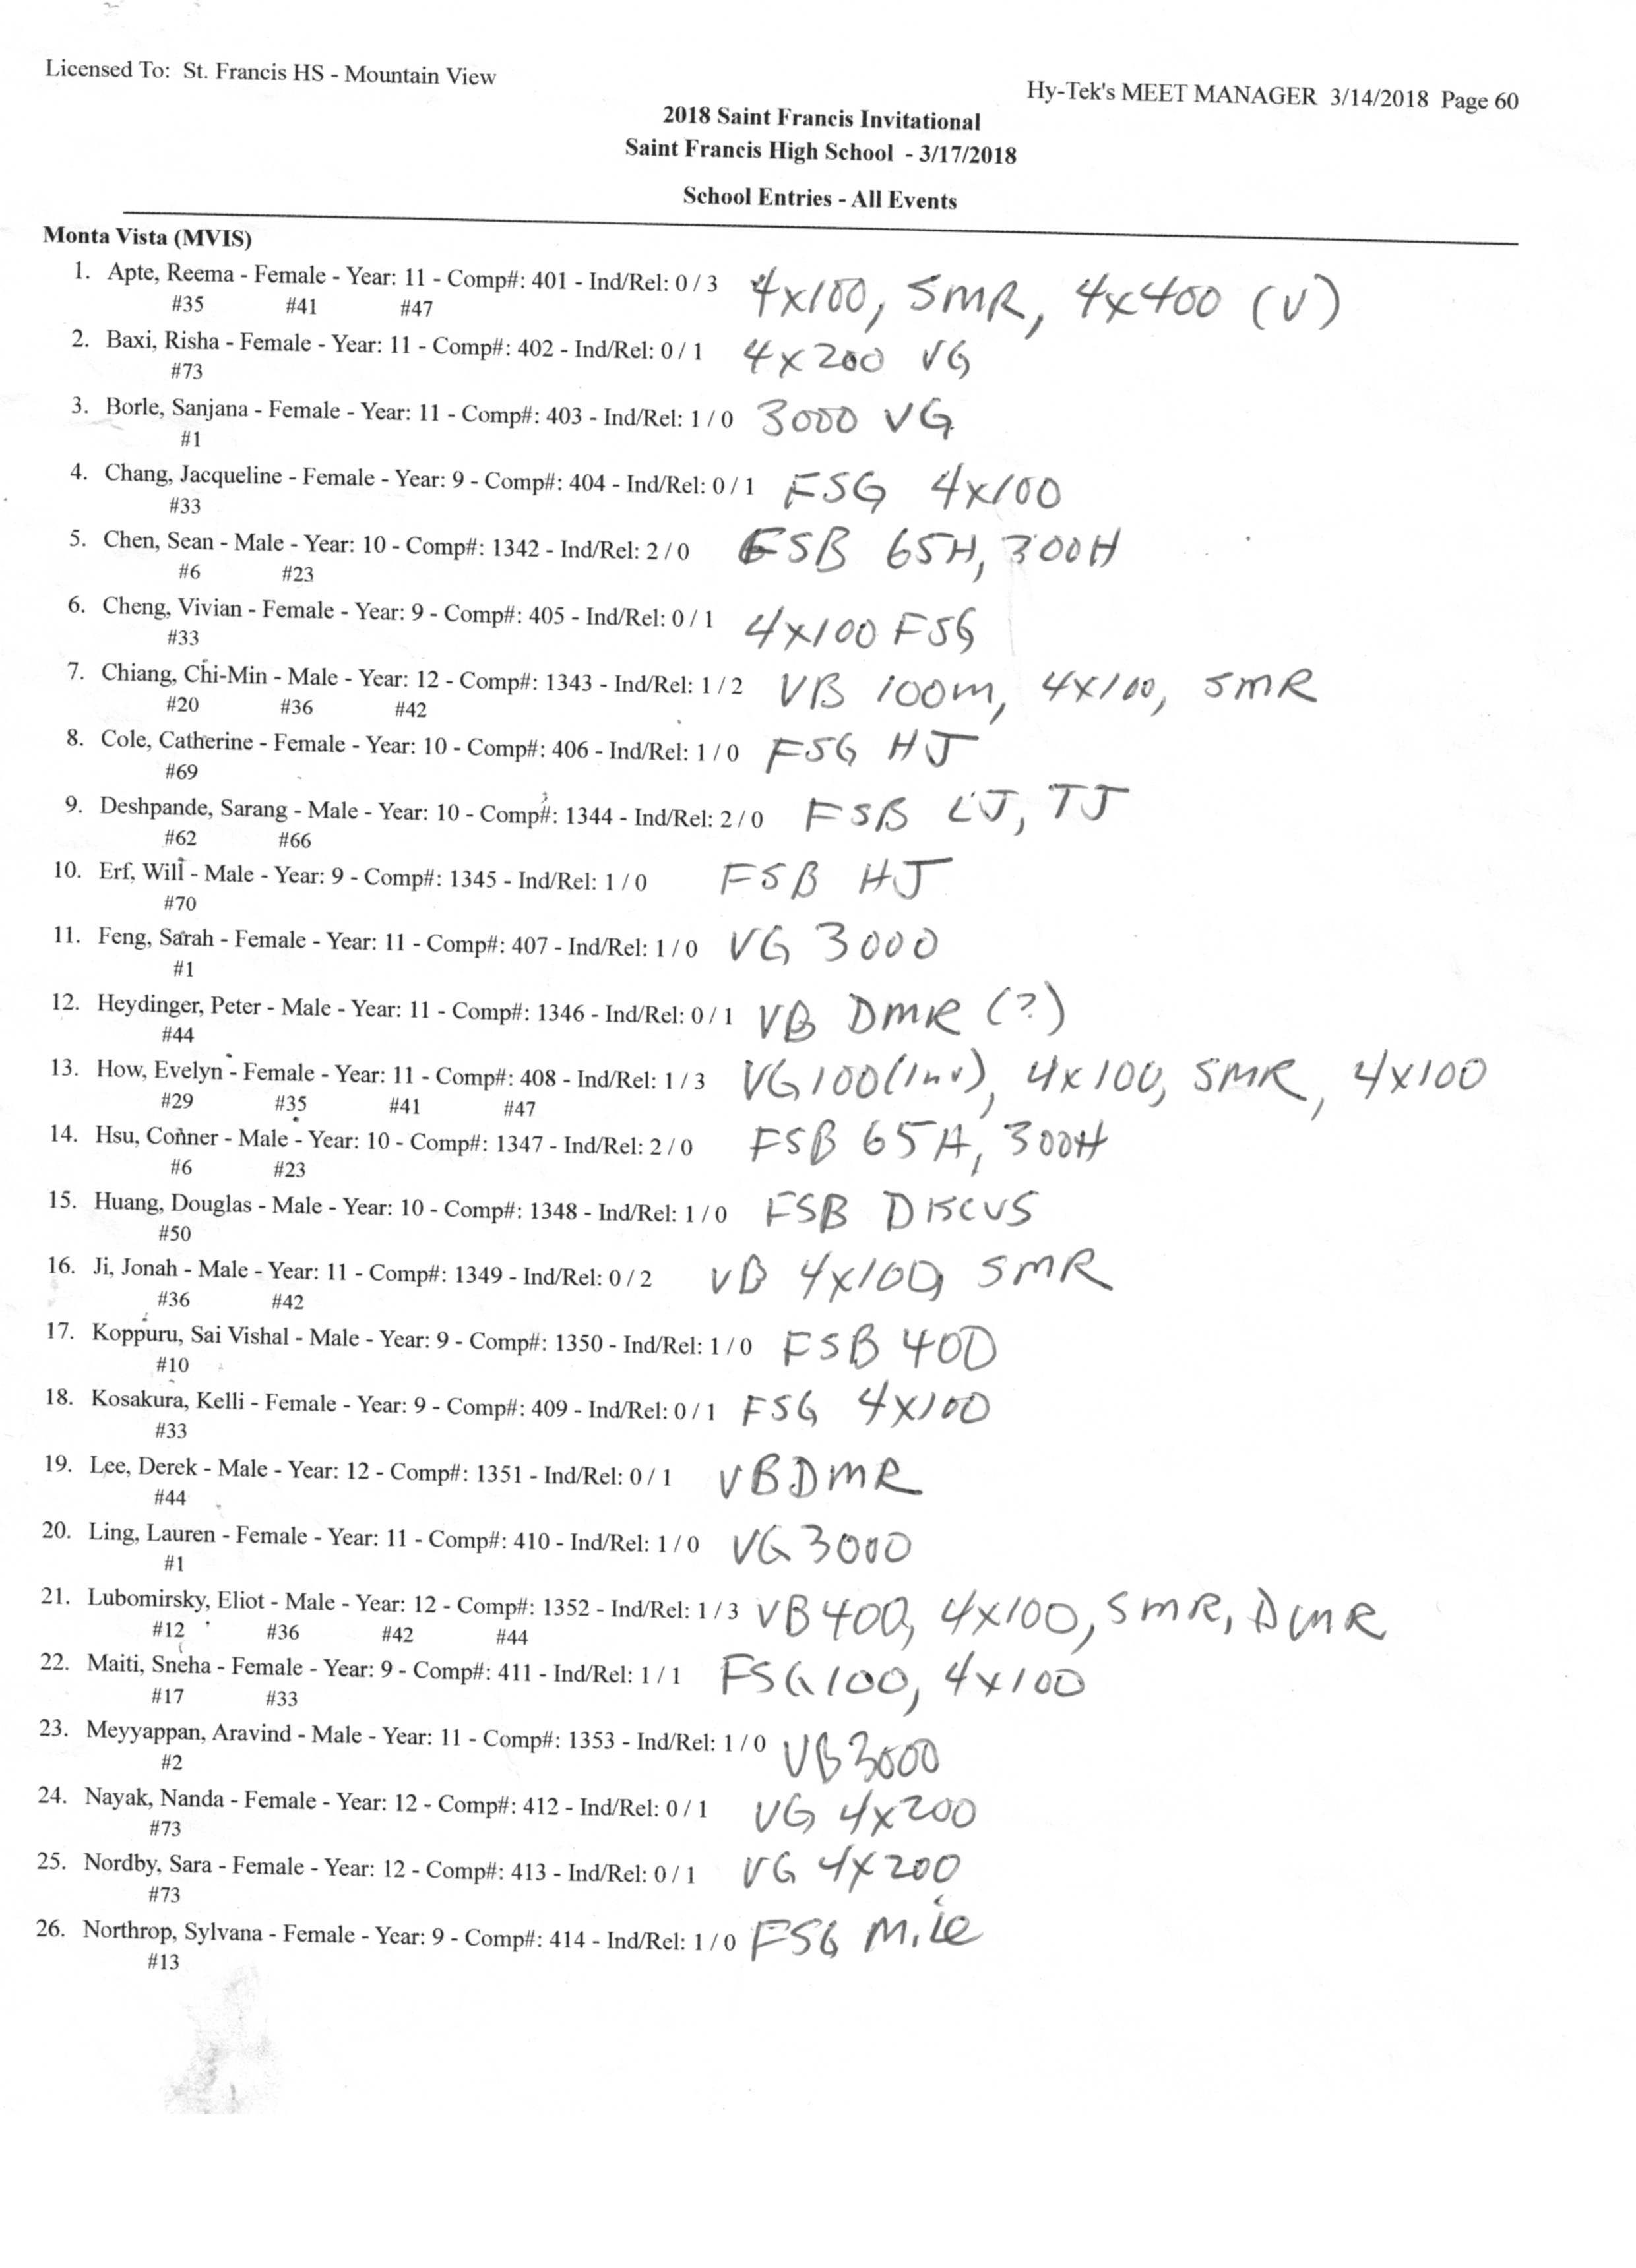 Licensed To: St. Francis HS - Mountain View
Hy-Tek's MEET MANAGER 3/14/2018 Page 60
2018 Saint Francis Invitational
Saint Francis High School - 3/17/2018
School Entries - All Events
Monta Vista (MVIS)
1. Apte, Reema - Female - Year: 11 - Comp#: 401 - Ind/Rel: 0 / 3 4x100, SMR, 4x400 (V)
#35 #41 #47
2. Baxi, Risha - Female - Year: 11 - Comp#: 402 - Ind/Rel: 0 / 1 4x200 VG
#73
3. Borle, Sanjana - Female - Year: 11 - Comp#: 403 - Ind/Rel: 1 / 0 3000 VG
#1
4. Chang, Jacqueline - Female - Year: 9 - Comp#: 404 - Ind/Rel: 0 / 1 FSG 4x100
#33
5. Chen, Sean - Male - Year: 10 - Comp#: 1342 - Ind/Rel: 2 / 0 FSB 65H, 300H
#6 #23
6. Cheng, Vivian - Female - Year: 9 - Comp#: 405 - Ind/Rel: 0 / 1 4x100 FSG
#33
7. Chiang, Chi-Min - Male - Year: 12 - Comp#: 1343 - Ind/Rel: 1 / 2 VB 100m, 4x100, SMR
#20 #36 #42
8. Cole, Catherine - Female - Year: 10 - Comp#: 406 - Ind/Rel: 1 / 0 FSG HJ
#69
9. Deshpande, Sarang - Male - Year: 10 - Comp#: 1344 - Ind/Rel: 2 / 0 FSB LJ, TJ
#62 #66
10. Erf, Will - Male - Year: 9 - Comp#: 1345 - Ind/Rel: 1 / 0 FSB HJ
#70
11. Feng, Sarah - Female - Year: 11 - Comp#: 407 - Ind/Rel: 1 / 0 VG 3000
#1
12. Heydinger, Peter - Male - Year: 11 - Comp#: 1346 - Ind/Rel: 0 / 1 VB DMR (?)
#44
13. How, Evelyn - Female - Year: 11 - Comp#: 408 - Ind/Rel: 1 / 3 VG 100 (Inv), 4x100, SMR, 4x100
#29 #35 #41 #47
14. Hsu, Conner - Male - Year: 10 - Comp#: 1347 - Ind/Rel: 2 / 0 FSB 65H, 300H
#6 #23
15. Huang, Douglas - Male - Year: 10 - Comp#: 1348 - Ind/Rel: 1 / 0 FSB DISCUS
#50
16. Ji, Jonah - Male - Year: 11 - Comp#: 1349 - Ind/Rel: 0 / 2 VB 4x100, SMR
#36 #42
17. Koppuru, Sai Vishal - Male - Year: 9 - Comp#: 1350 - Ind/Rel: 1 / 0 FSB 400
#10
18. Kosakura, Kelli - Female - Year: 9 - Comp#: 409 - Ind/Rel: 0 / 1 FSG 4x100
#33
19. Lee, Derek - Male - Year: 12 - Comp#: 1351 - Ind/Rel: 0 / 1 VB DMR
#44
20. Ling, Lauren - Female - Year: 11 - Comp#: 410 - Ind/Rel: 1 / 0 VG 3000
#1
21. Lubomirsky, Eliot - Male - Year: 12 - Comp#: 1352 - Ind/Rel: 1 / 3 VB 400, 4x100, SMR, DMR
#12 #36 #42 #44
22. Maiti, Sneha - Female - Year: 9 - Comp#: 411 - Ind/Rel: 1 / 1 FSG 100, 4x100
#17 #33
23. Meyyappan, Aravind - Male - Year: 11 - Comp#: 1353 - Ind/Rel: 1 / 0 VB 3000
#2
24. Nayak, Nanda - Female - Year: 12 - Comp#: 412 - Ind/Rel: 0 / 1 VG 4x200
#73
25. Nordby, Sara - Female - Year: 12 - Comp#: 413 - Ind/Rel: 0 / 1 VG 4x200
#73
26. Northrop, Sylvana - Female - Year: 9 - Comp#: 414 - Ind/Rel: 1 / 0 FSG Mile
#13